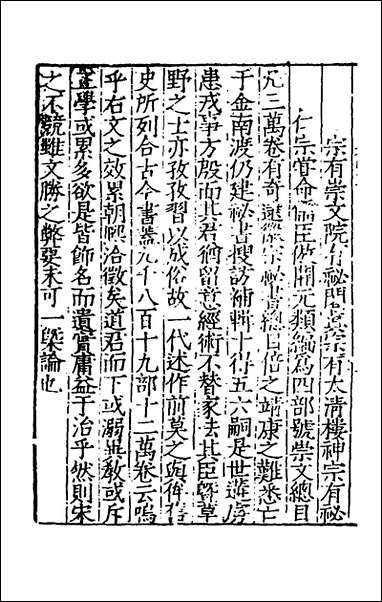 宗有崇文院有祕閣真宗有太清樓神宗有祕
仁宗嘗命儒臣倣開元類編為四部號崇文總目
凡三萬卷有奇逮徽宗祕書總目倍之靖康之難悉亡
于金南渡仍建祕書搜訪補輯十得五六嗣是世遘虜
患戎事方殷而其君猶留意經術不替家法其臣曁草
野之士亦孜孜習以成俗故一代述作前莫之與侔信
史所列合古今書蓋九千八百十九部十二萬卷云嗚
乎右文之效累朝熙洽徵矣道君而下或溺異教或斥
正學或累多欲是皆飾名而遺實庸益于治乎然則宋
之不競雖文勝之弊要未可一槩論也